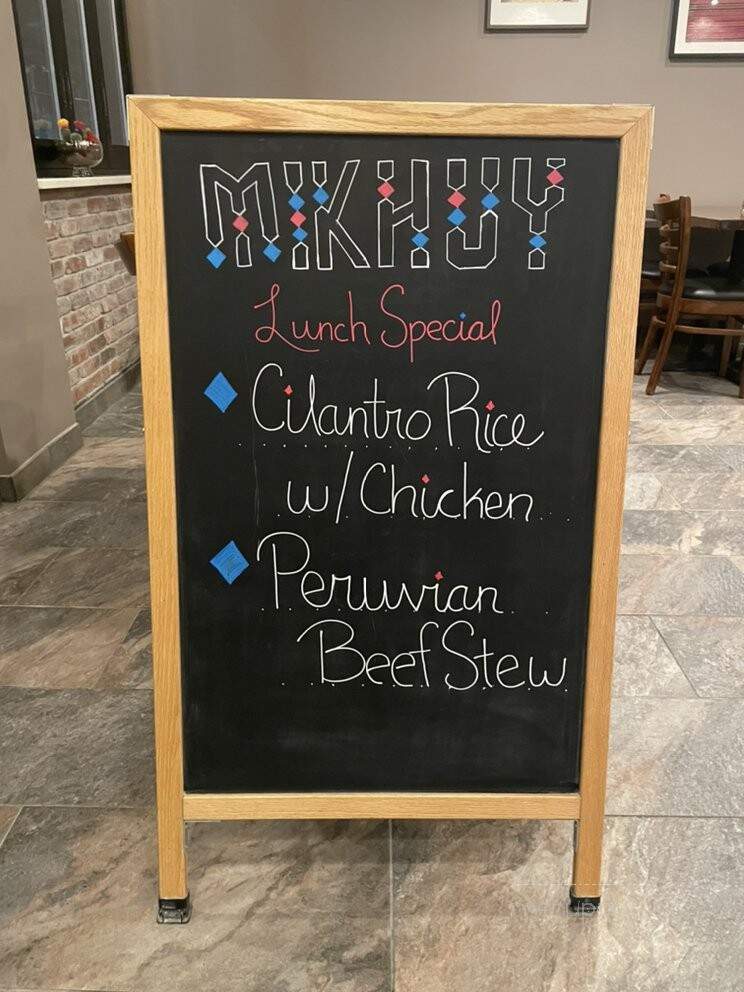 MIKHUY
Lunch Special
Cilantro Rice
w/ Chicken
Peruvian
Beef Stew